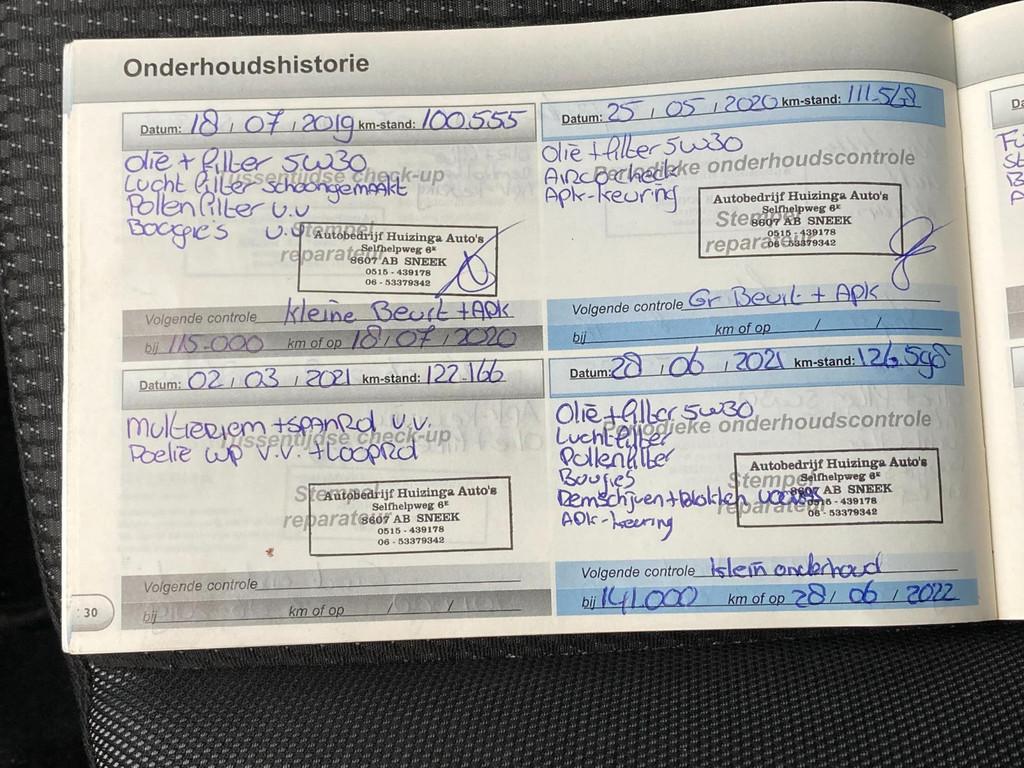 Onderhoudshistorie
Datum: 18 / 07 / 2019 km-stand: 100.555
Olie + filter 5W30
Tussentijdse check-up
Lucht filter schoongemaakt
Pollenfilter v.v
Bougie's v.v
Stempel
reparateur
Autobedrijf Huizinga Auto's
Selfhelpweg 6ᴱ
8607 AB SNEEK
0515 - 439178
06 - 53379342
Volgende controle kleine Beurt + APK
bij 115.000 km of op 18 / 07 / 2020
Datum: 25 / 05 / 2020 km-stand: 111.548
Olie + filter 5W30
Periodieke onderhoudscontrole
Airco check
Apk-keuring
Stempel
reparateur
Autobedrijf Huizinga Auto's
Selfhelpweg 6ᴱ
8607 AB SNEEK
0515 - 439178
06 - 53379342
Volgende controle Gr Beurt + APK
bij km of op / /
Datum: 02 / 03 / 2021 km-stand: 122.166
Multieriem + SPANRol v.v.
Tussentijdse check-up
Poelie WP V.V. + LOOPRol
Stempel
reparateur
Autobedrijf Huizinga Auto's
Selfhelpweg 6ᴱ
8607 AB SNEEK
0515 - 439178
06 - 53379342
Volgende controle
bij km of op / /
Datum: 28 / 06 / 2021 km-stand: 126.598
Olie + filter 5W30
Periodieke onderhoudscontrole
Luchtfilter
Pollenfilter
Bougies
Remschijven + Blokken
APK-keuring
Stempel
reparateur
Autobedrijf Huizinga Auto's
Selfhelpweg 6ᴱ
8607 AB SNEEK
0515 - 439178
06 - 53379342
Volgende controle klein onderhoud
bij 141.000 km of op 28 / 06 / 2022
30